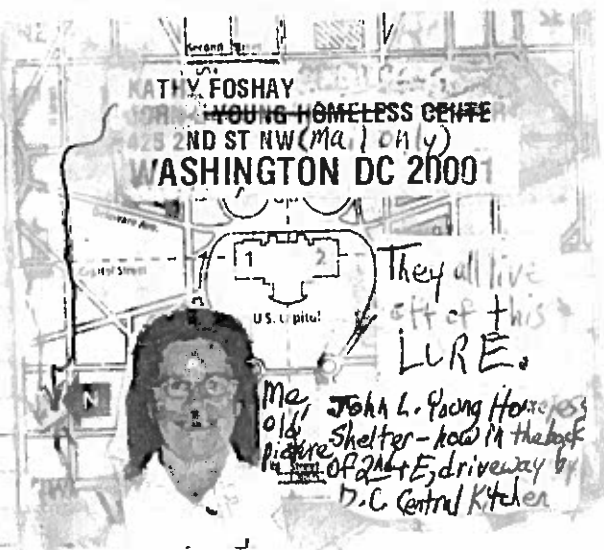 Second Street
KATHY FOSHAY
JOHN L YOUNG HOMELESS CENTE
425 2ND ST NW (mail only)
WASHINGTON DC 20001
Delaware Ave.
Capitol Street
1 2
U.S. Capitol
They all live
off of this
LURE.
N
Me,
old
picture
Street
John L. Young Homeless
Shelter-now in the back
Of 2nd + E, driveway by
D.C. Central Kitchen